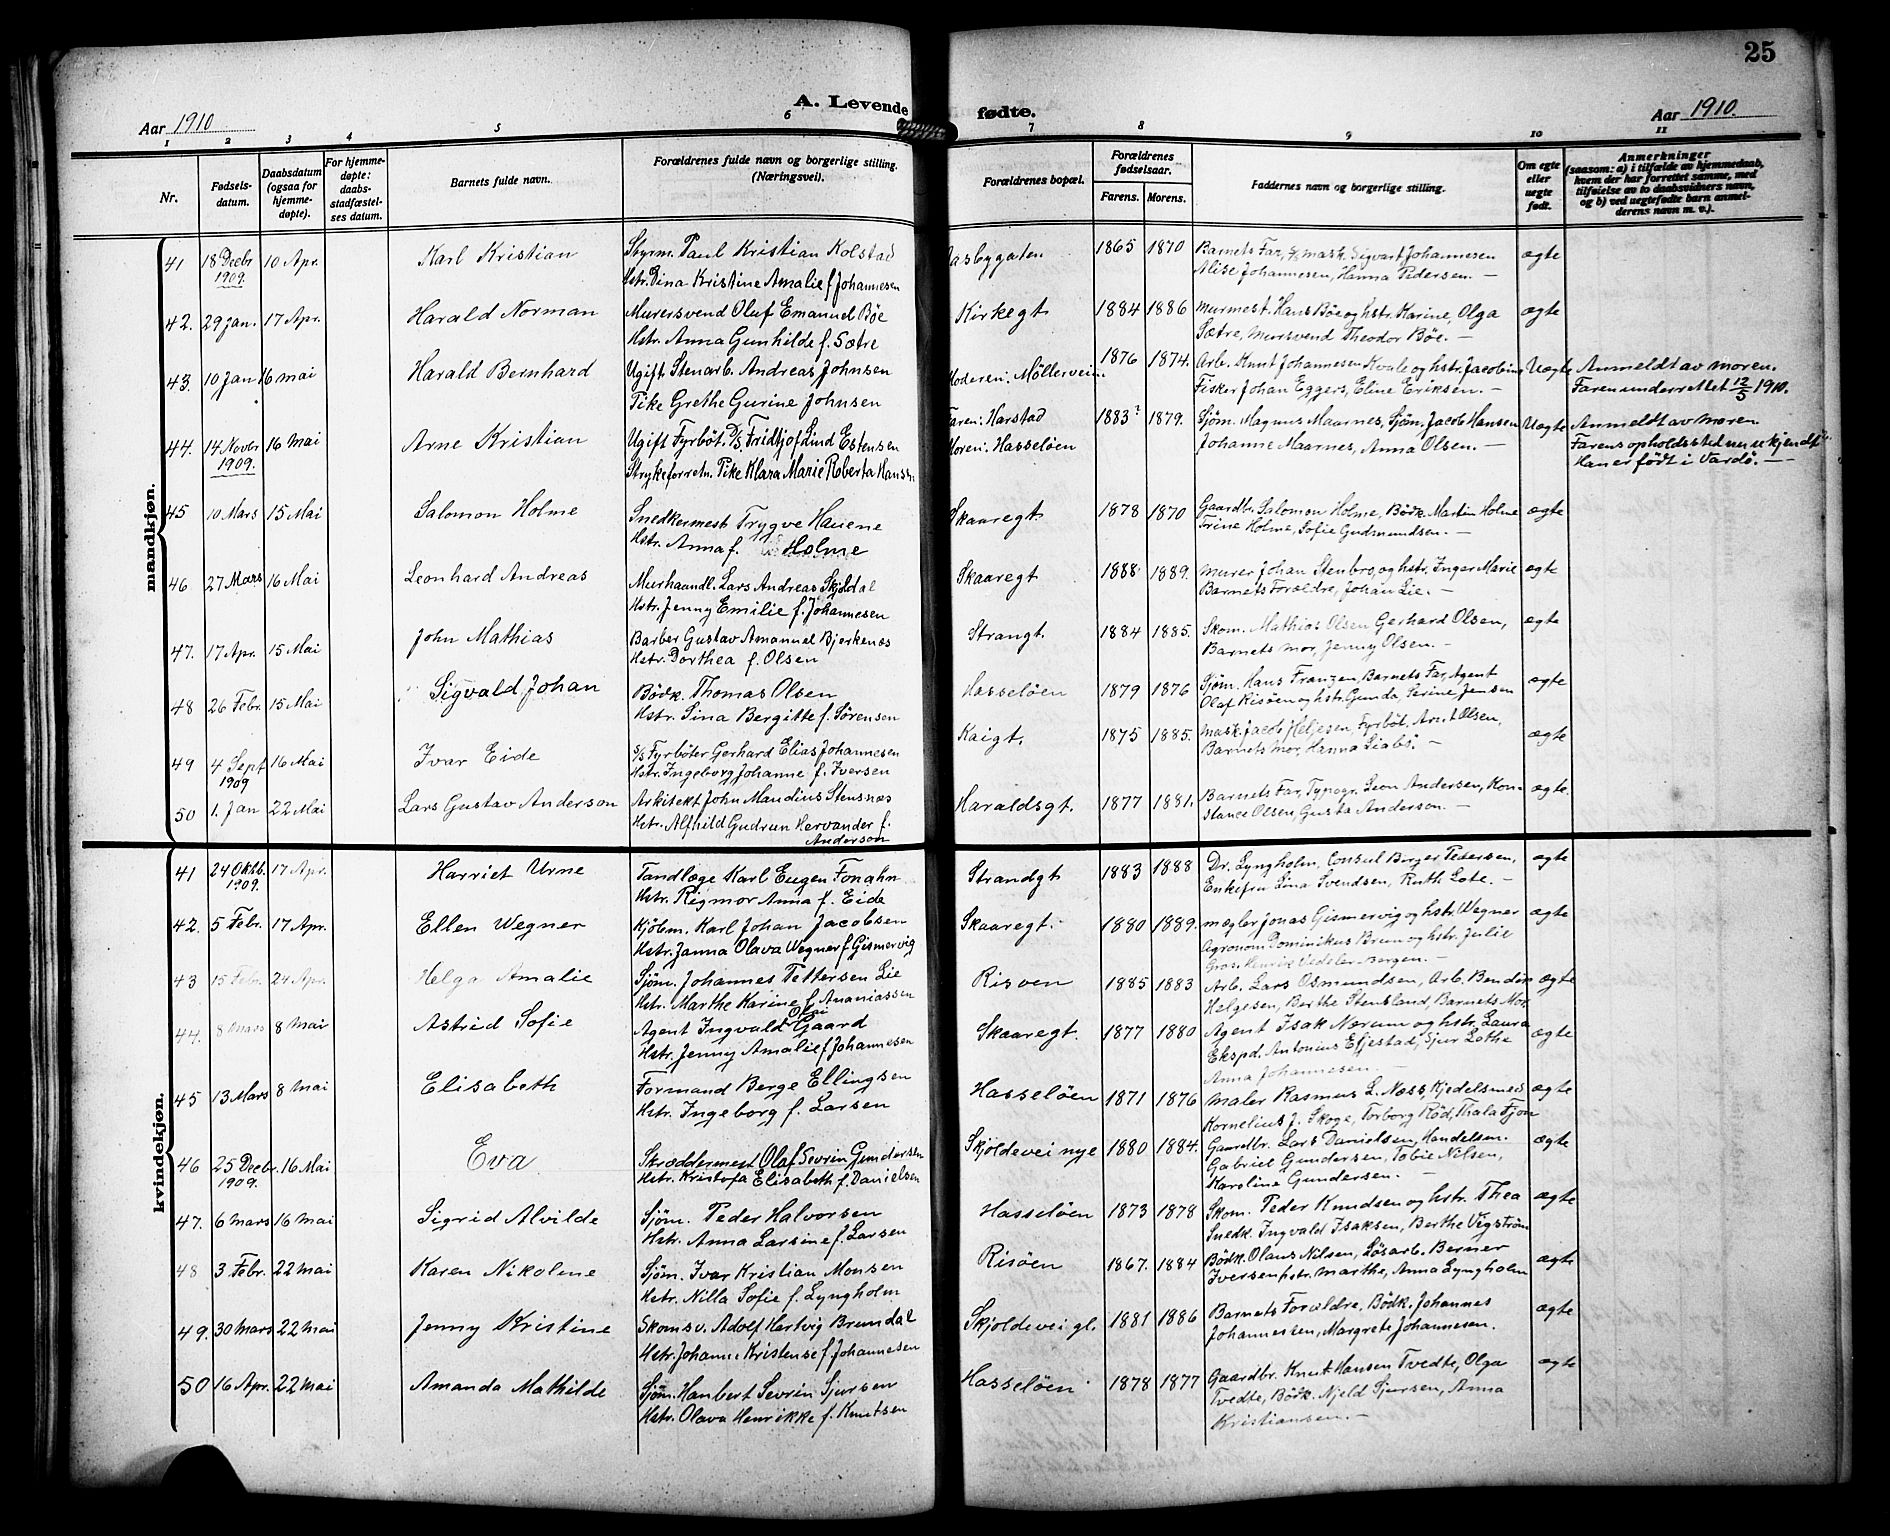 25
A. Levende fødte.
Aar 1910
Aar 1910.
1 2 3 4 5 6 7 8 9 10 11
Nr.
Fødsels-
datum.
Daabsdatum
(ogsaa for
hjemme-
døpte).
For hjemme-
døpte:
daabs-
stadfæstel-
ses datum.
Barnets fulde navn.
Forældrenes fulde navn og borgerlige stilling.
(Næringsvei).
Forældrenes bopæl.
Forældrenes
fødselsaar.
Farens. Morens.
Faddernes navn og borgerlige stilling.
Om egte
eller
uegte
født.
Anmerkninger
(saasom: a) i tilfælde av hjemmedaab,
hvem der har forrettet samme, med
tilføielse av to daabsvidners navn,
og b) ved uegtefødte barn anmel-
derens navn m. v.).
mandkjøn.
41 18 Decbr 10 Apr. Karl Kristian Styrm. Paul Kristian Kolstad Aasbygaten 1865 1870 Barnets Far, mask. Sigvart Johannesen ægte
1909. Hstr. Dina Kristine Amalie f. Johannesen Alise Johannesen, Hanna Pedersen. —
42. 29 Jan. 17 Apr. Harald Norman Murersvend Oluf Emanuel Böe Kirkegt 1884 1886 Murmest. Hans Böe og hstr. Karine, Olga ægte
Hstr. Anna Gunhilde f. Sætre Sætre, Mursvend Theodor Böe. —
43. 10 Jan 16 mai Harald Bernhard Ugift Stenarb. Andreas Johnsen Moderen: Möllervein. 1876 1874. Arb. Knut Johannesen Kvale og hstr. Jacobine Uegte Anmeldt av moren.
Pike Grethe Gurine Johnsen Fisker Johan Eggers, Eline Eriksen. — Faren underrettet 12/5 1910.
44. 14 Novbr 16 mai Arne Kristian Ugift Fyrböt. D/S Fridtjof Lind Estensen Faren: Harstad 1883? 1879. Sjöm. Magnus Maarnes, Sjöm. Jacob Hansen Uegte Anmeldt av moren
1909. Strykeforretn. Pike Klara Marie Roberta Hansen Moren: Hasselöen Johanne Maarnes, Anna Olsen. — Farens opholdssted nu ukjendt
Han er födt i Vardö. —
45 10 Mars 15 Mai Salomon Holme Snedkermest Trygve Hauene Skaaregt. 1878 1870 Gaardbr. Salomon Holme, Bödk. Martin Holme ægte
Hstr. Anna f. Holme Trine Holme, Sofie Gudmundsen. —
46 27 Mars 16 Mai Leonhard Andreas Murhaandl. Lars Andreas Skjoldal Skaaregt 1888 1889. Murer Johan Stenbro, og hstr. Inger Marie ægte
Hstr. Jenny Emilie f. Johannesen Barnets Forældre, Johan Lie. —
47. 17 Apr. 15 Mai John Mathias Barber Gustav Amanuel Bjerkenæs Strangt. 1884 1885. Skom. Mathias Olsen Gerhard Olsen, ægte
Hstr. Dorthea f. Olsen Barnets mor, Jenny Olsen. —
48 26 Febr. 15 Mai Sigvald Johan Bödk. Thomas Olsen Hasselöen 1879 1876 Sjöm. Hans Franzen, Barnets Far, Agent ægte
Hstr. Sina Bergitte f. Sörensen Olaf Risöen og hstr. Gunda, Serine Jensen
49 4 Sept 16 Mai Ivar Eide S/S Fyrböter Gerhard Elias Johannesen Kaigt. 1875 1885. Mask. Jacob Heljesen, Fyrböt. Arnt Olsen, ægte
1909 Hstr. Ingeborg Johanne f. Iversen Barnets Mor, Hanna Liabö. —
50 1. Jan 22 Mai Lars Gustav Anderson Arkitekt John Mandius Stensnæs Haraldsgt. 1877 1881. Barnets Far, Typogr. Leon Andersen, Kon- ægte.
Hstr. Alfhild Gudrun Hervander f. stance Olsen, Gusta Anderson. —
Anderson
kvindekjøn.
41 24 Oktb. 17 Apr. Harriet Urne Tandlæge Karl Eugen Fonahn Strandgt 1883 1888 Dr. Lyngholm, Consul Berger Pedersen, ægte
1909. Hstr. Rigmor Anna f. Eide Enkefru Lina Svendsen, Ruth Lote. —
42. 5 Febr. 17 Apr. Ellen Wegner Kjöbm. Karl Johan Jacobsen Skaaregt. 1880 1889. Mægler Jonas Gismervig og hstr. Wegner ægte
Hstr. Janna Olava Wegner f. Gismervig Agronom Dominikus Brun og hstr. Julie
Gros. Henrik Vedeler Bergen. —
43 15 Febr. 24 Apr. Helga Amalie Sjöm. Johannes Pettersen Lie Risöen 1885 1883 Arb. Lars Osmundsen, Arb. Bendin ægte
Hstr. Marthe Karine f. Ananiassen Helgesen, Berthe Stensland, Barnets Mor
44. 8 Mars 8 Mai Astrid Sofie Agent Ingvald Olai Gaard Skaaregt. 1877 1880 Agent Isak Nærum og hstr. Laura ægte
Hstr. Jenny Amalie f Johannesen Ekspd. Antonius Efjestad, Sjur Lothe
Anna Johannesen. —
45 13 Mars 8 Mai Elisabeth Formand Berge Ellingsen Hasselöen 1871 1876 Maler Rasmus L. Næss, Kjedelsmed ægte
Hstr. Ingeborg f. Larsen Kornelius J. Skoge, Torborg Röd, Thala Fjon
46 25 Decbr. 16 Mai Eva Skræddermest Olaf Sevrin Gundersen Skjoldevei nye 1880 1884. Gaardbr. Lars Danielsen, Handelsm. ægte
1909. Hstr. Kristofa Elisabeth f. Danielsen Gabriel Gundersen, Tobie Nilsen,
Karoline Gundersen. —
47. 6 Mars 16 Mai Sigrid Alvilde Sjöm. Peder Halvorsen Hasselöen 1873 1878 Skom. Peder Knudsen og hstr. Thea ægte
Hstr. Anna Larsine f. Larsen Snedk. Ingvald Isaksen, Berthe Vigström
48 3. Febr. 22 Mai Karen Nikoline Sjöm. Ivar Kristian Monsen Risöen 1867. 1884 Bödk. Olaus Nilsen, Lösarb. Berner ægte
Hstr. Nilla Sofie f. Lyngholm Iversen hstr. Marthe, Anna Lyngholm
49. 30 Mars 22 Mai Jenny Kristine Skomsv. Adolf Hertvig Brundal Skjoldevei gl. 1881 1886 Barnets Forældre, Bödk. Johannes ægte
Hstr. Johanne Kristense f. Johannesen Johannessen, Margrete Johannesen.
50 16 Apr. 22 Mai Amanda Mathilde Sjöm. Hanbert Sevrin Sjursen Hasselöen 1878 1877 Gaardbr. Knut Hansen Tvedte, Olga ægte
Hstr. Olava Henrikke f. Knutsen Tvedte, Bödk. Njeld Sjursen, Anna
Kristiansen. —